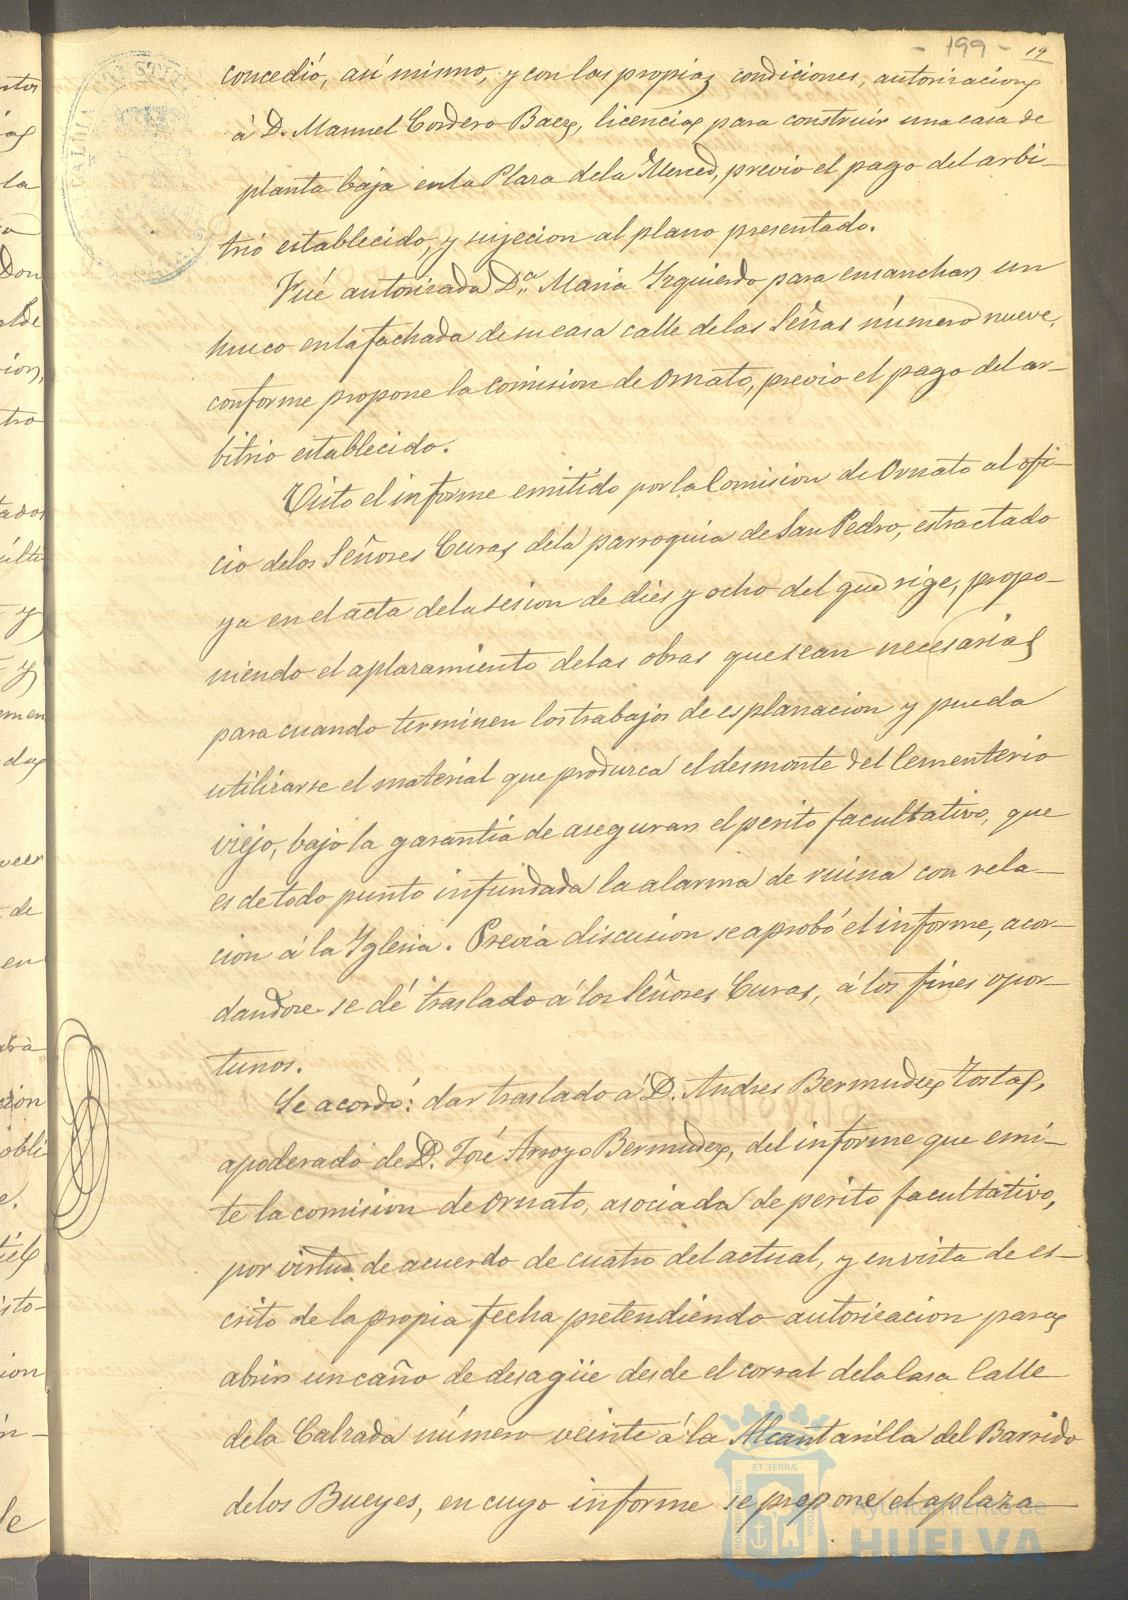 - 199 - 19
concedió, así mismo, y con las propias condiciones, autorizacion
á D. Manuel Cordero Baez, licencia para construir una casa de
planta baja en la Plaza de la Merced, previo el pago del arbi-
trio establecido, y sujecion al plano presentado.
Fué autorizada D.ª Maria Izquierdo para ensanchar un
hueco en la fachada de su casa calle de las Señas número nueve,
conforme propone la comision de Ornato, previo el pago del ar-
bitrio establecido.
Visto el informe emitido por la Comision de Ornato al ofi-
cio de los Señores Curas de la parroquia de San Pedro, estractado
ya en el acta de la sesion de dies y ocho del que rige, propo-
niendo el aplazamiento de las obras que sean necesarias
para cuando terminen los trabajos de esplanacion y pueda
utilizarse el material que produzca el desmonte del Cementerio
viejo, bajo la garantía de asegurar el perito facultativo, que
es de todo punto infundada la alarma de ruina con rela-
cion á la Iglesia. Prévia discusion se aprobó el informe, acor-
dandose se dé traslado á los Señores Curas, á los fines opor-
tunos.
Se acordó: dar traslado á D. Andres Bermudez Tosta,
apoderado de D. José Arroyo Bermudez, del informe que emi-
te la comision de Ornato, asociada de perito facultativo,
por virtud de acuerdo de cuatro del actual, y en vista de es-
crito de la propia fecha pretendiendo autorizacion para
abrir un caño de desagüe desde el corral de la Casa Calle
de la Calzada número veinte á la Alcantarilla del Barrido
de los Bueyes, en cuyo informe se propone el aplaza
Ayuntamiento de
HUELVA